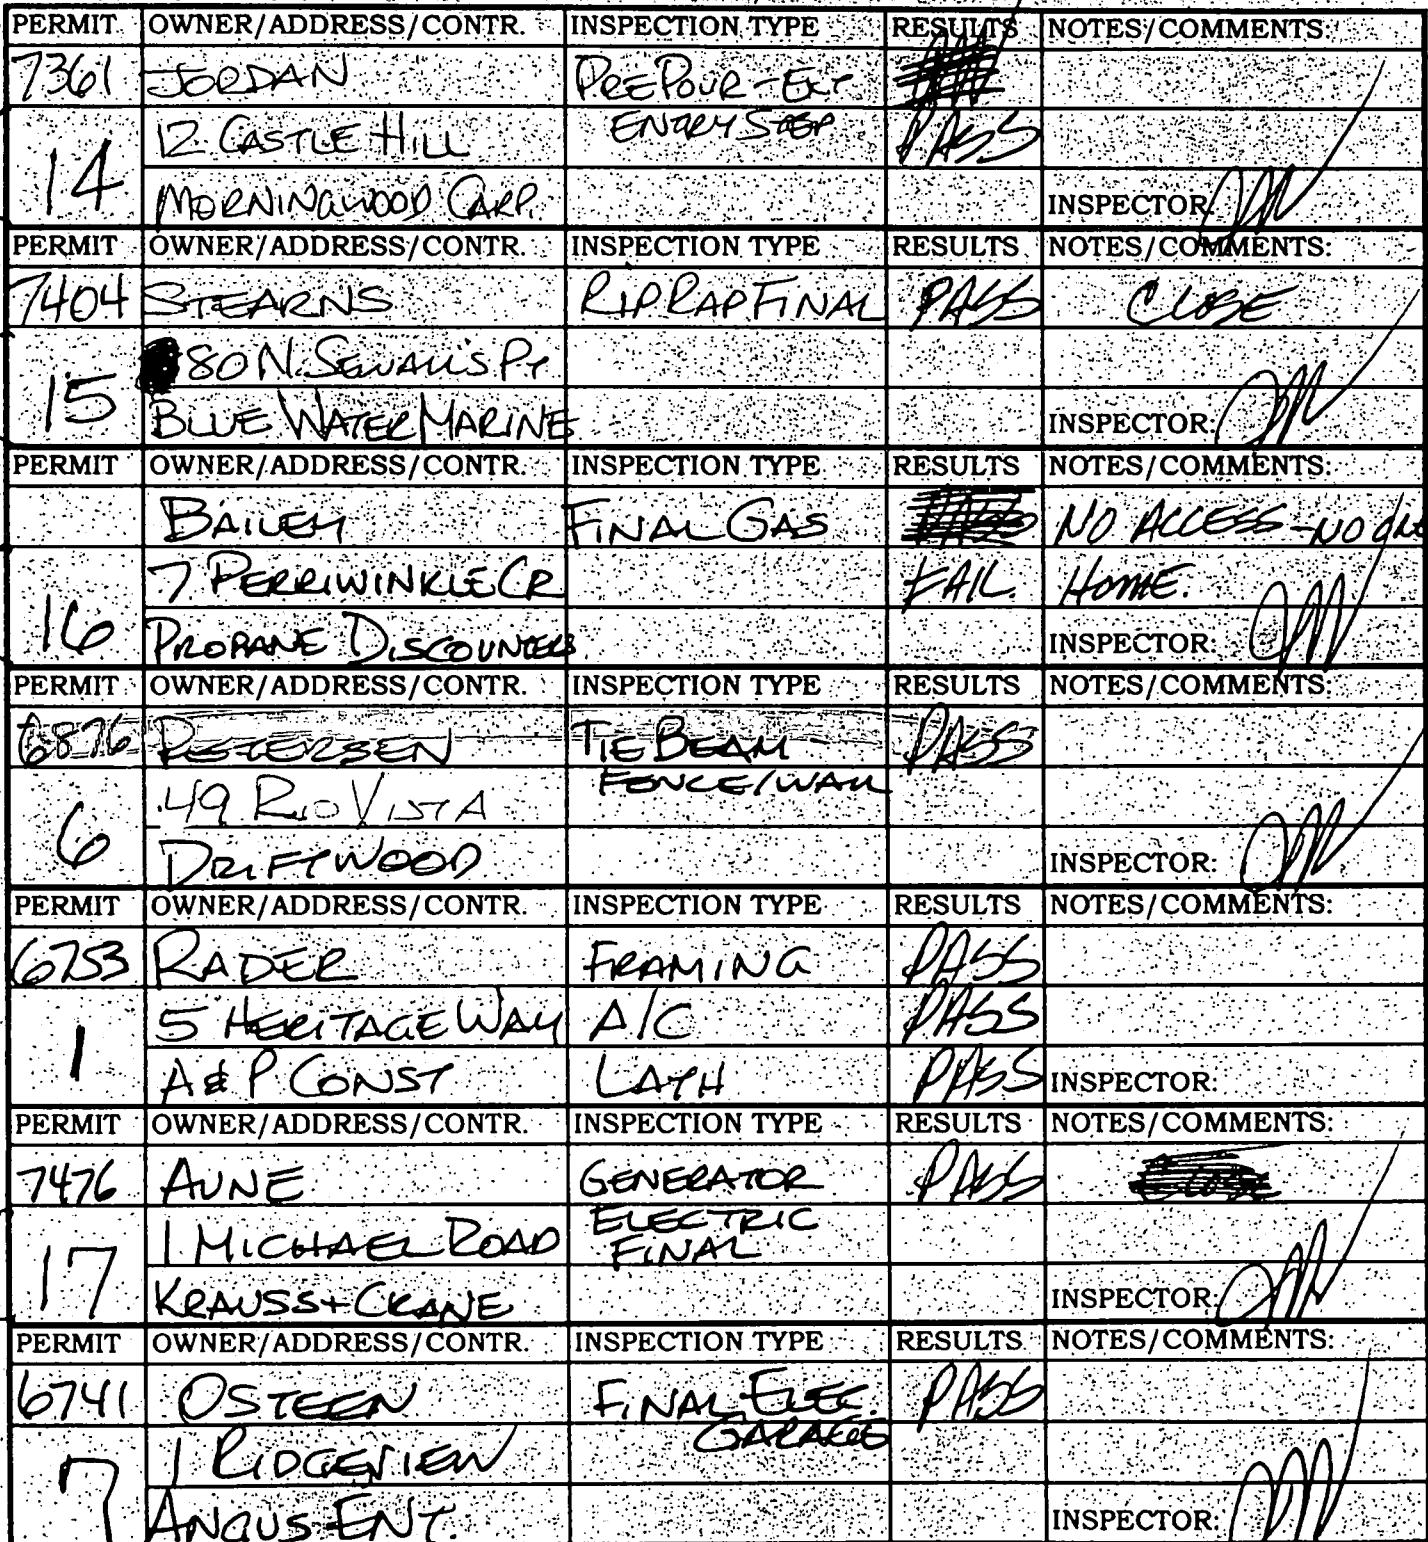 PERMIT OWNER/ADDRESS/CONTR. INSPECTION TYPE RESULTS NOTES/COMMENTS:
7361 JORDAN PREPOUR-EXT
12 CASTLE HILL ENTRY STEP PASS
14 MORNINGWOOD CARP. INSPECTOR
PERMIT OWNER/ADDRESS/CONTR. INSPECTION TYPE RESULTS NOTES/COMMENTS:
7404 STEARNS RIPRAP FINAL PASS CLOSE
80 N. SEWALL'S PT
15 BLUE WATER MARINE INSPECTOR:
PERMIT OWNER/ADDRESS/CONTR. INSPECTION TYPE RESULTS NOTES/COMMENTS:
BAILEY FINAL GAS NO ACCESS - NO ONE
7 PERRIWINKLE CR FAIL. HOME.
16 PROPANE DISCOUNTERS INSPECTOR:
PERMIT OWNER/ADDRESS/CONTR. INSPECTION TYPE RESULTS NOTES/COMMENTS:
6876 PETERSEN TIE BEAM - PASS
49 RIO VISTA FENCE/WALL
6 DRIFTWOOD INSPECTOR:
PERMIT OWNER/ADDRESS/CONTR. INSPECTION TYPE RESULTS NOTES/COMMENTS:
6753 RADER FRAMING PASS
5 HERITAGE WAY A/C PASS
1 A&P CONST LATH PASS INSPECTOR:
PERMIT OWNER/ADDRESS/CONTR. INSPECTION TYPE RESULTS NOTES/COMMENTS:
7476 AUNE GENERATOR PASS
1 MICHAEL ROAD ELECTRIC
FINAL
17 KRAUSS+CRANE INSPECTOR:
PERMIT OWNER/ADDRESS/CONTR. INSPECTION TYPE RESULTS NOTES/COMMENTS:
6741 OSTEEN FINAL ELEC. PASS
1 RIDGEVIEW GARAGE
7 ANGUS ENT. INSPECTOR: